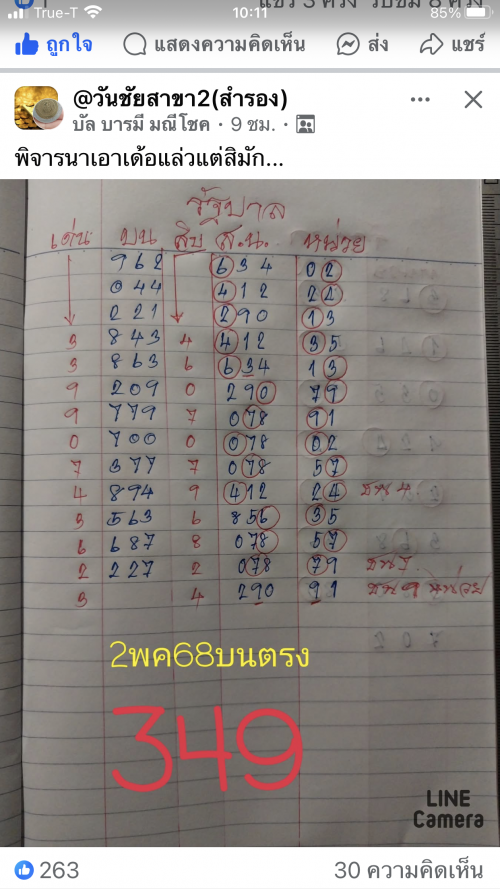 True-T 10:11 85%
ถูกใจ แสดงความคิดเห็น ส่ง แชร์
@วันชัยสาขา2(สำรอง)
บัล บารมี มณีโชค · 9 ชม. ·
พิจารนาเอาเด้อแล่วแต่สิมัก...
รัฐบาล
เด่น บน สิบ ส.น. หน่วย
962 634 02
044 412 24
221 290 13
3 843 4 412 35
3 863 6 634 13
9 209 0 290 79
9 779 7 078 91
0 700 0 078 02
7 377 7 078 57
4 894 9 412 24 ชน 4
3 563 6 856 35
6 687 8 078 57
2 227 2 078 79 ชน 7
3 4 290 91 ชน 9 หน่วย
2พค68บนตรง
349
LINE
Camera
263 30 ความคิดเห็น